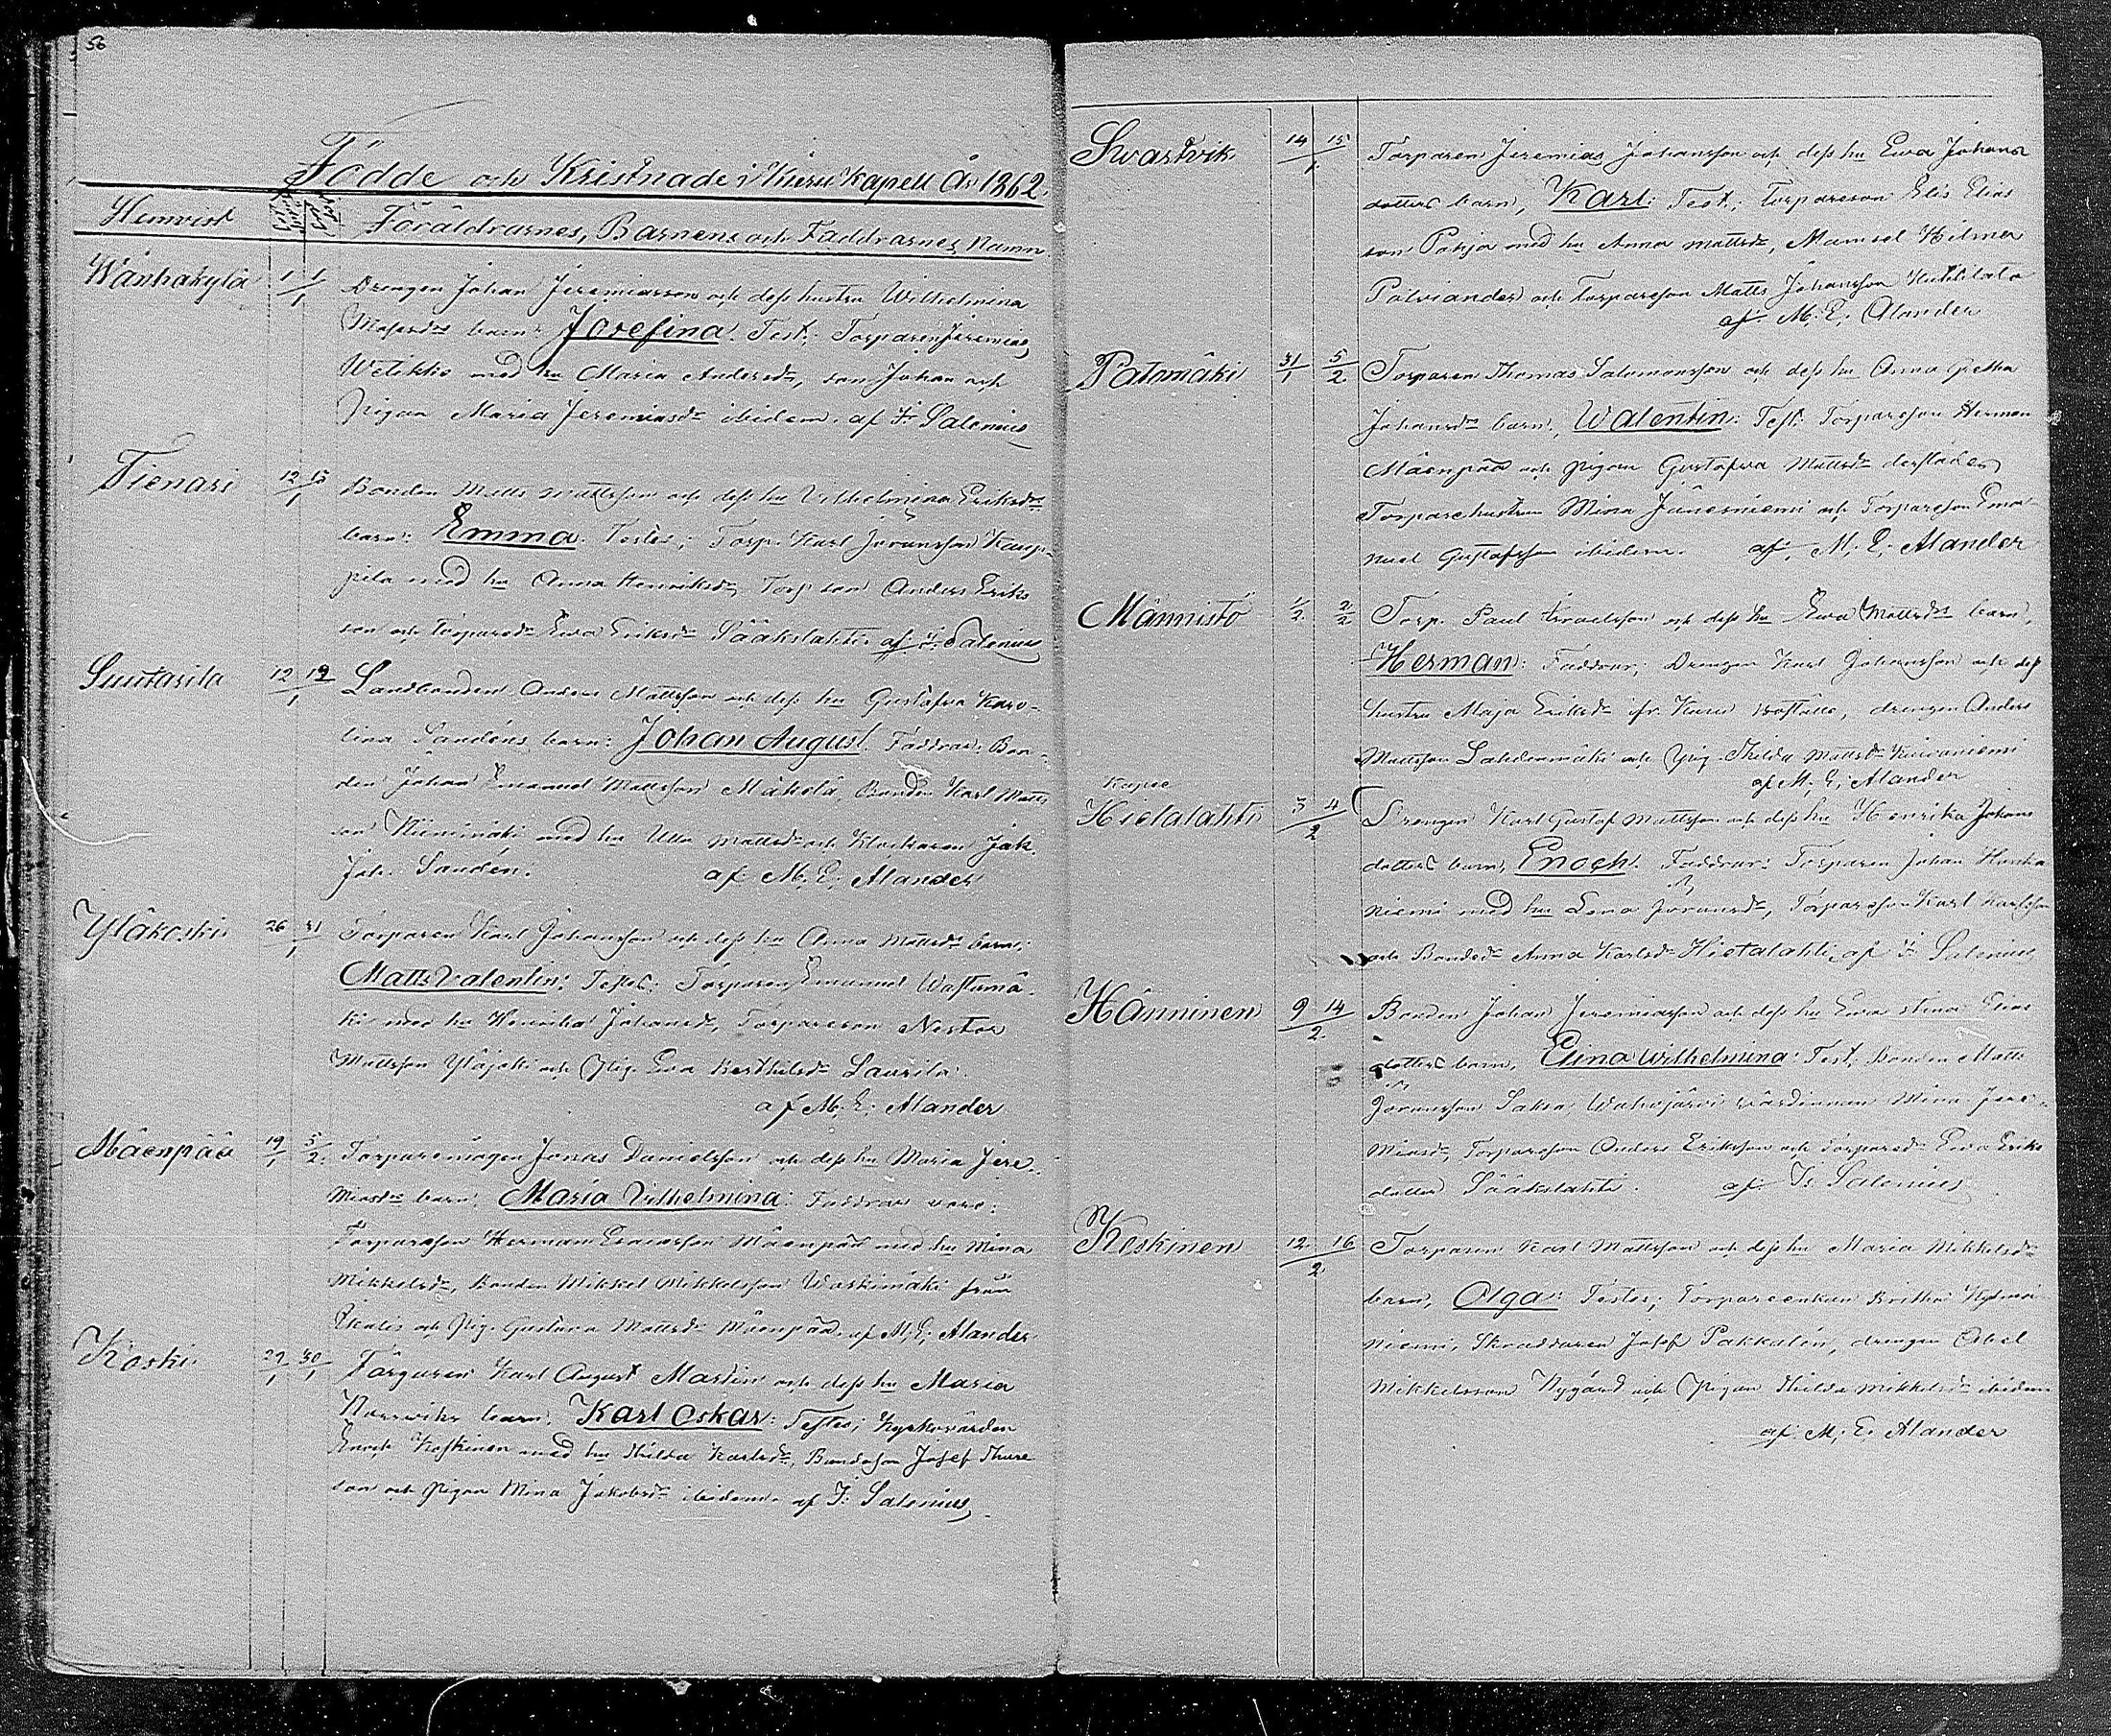 56
Födde och Kristnade i Kuru kapell År 1862.
Hemvist
Föräldrarnes, Barnens och Faddrarnes Namn
Wänhakylä 1/1 1/1 Drengen Johan Jeremiasson och dess hustru Wilhelmina
barn: Josefina. Test: Torparen Jeremias
med hu Maria Andersdr, son Johan och
Pigan Maria Jeremiasdr ibidem. af F: Salenius
Tienari 12 15/1 Bonden Matts Mattsson och dess hu Vilhelmina Eriksdrs
barn: Emma. Testes; Torp. Karl Göransson Kaup-
pila med hu Anna Henriksdr, Torp. son Anders Eriks
son och Torparedr Ewa Eriksdr Sääkslahti. af F: Salenius
Suutarila 12 19/1 Landbonden Anders Mattsson och dess hu Gustafva Karo-
lina Sandéns barn: Johan August. Faddrar: Bon-
den Johan Emanuel Mattsson Mäkelä, Bonden Karl Matts
son Niinimäki med hu Ulla Mattsdr och Klockaren Jak.
Joh. Sandén. af M. E. Alander
Yläkoski 26 31/1 Torparen Karl Johansson och dess hu Anna Mattsdrs barn:
Matts Valentin: Testes: Torparen Emanuel Wastamä-
ki med hu Henrika Johansdr, Torpareson Nestor
Mattsson Yläjoki och Pig. Ewa Berthilsdr Laurila.
af M. E. Alander
Mäenpää 19/1 5/2 Torparemågen Jonas Danielsson och dess hu Maria Jere-
miasdrs barn, Maria Vilhelmina: Faddrar voro:
Torpareson Herman Mäenpää med hu Mina
Mikkelsdr, Bonden Mikkel Mikkelsson Waskimäki från
Ikalis och Pig. Gustava Mattsdr Mäenpää. af M. E. Alander
Koski 29/1 30/1 Färgaren Karl August Martin och dess hu Maria
barn, Karl Oskar: Testes; Kyrkovärden
Enoch Keskinen med hu Hilda Karlsdr, Bondeson Josef Thure
son och Pigan Mina Jakobsdr ibidem. af F: Salenius
Swartvik 14 15/1 Torparen Jeremias Johansson och dess hu Ewa Johans
dotters barn, Karl: Test; Torpareson Elis Elias
son Pohja med hu Anna Mattsdr, Mamsel Hilma
Palviander och Torpareson Matts Johansson Huhtilato
af M. E. Alander
Patamäki 31/1 5/2 Torparen Thomas Salomonsson och dess hu Anna Gretha
Johansdrs barn, Walentin: Test: Torpareson Herman
Mäenpää och Pigan Gustafva Mattsdr derstädes
Torparehustrun Mina Jänesniemi och Torpareson Ema-
nuel Gustafsson ibidem. af M. E. Alander
Männistö 1/2 2/2 Torp. Paul Israelsson och dess hu Ewa Mattsdrs barn,
Herman: Faddrar; Drengen Karl Johansson och dess
hustru Maja Eriksdr fr. Kuru, drengen Anders
Mattsson Lahdenmäki och Pig. Thilda Mattsdr
af M. E. Alander
Hietalahti 3 4/2 Drengen Karl Gustaf Mattsson och dess hu Henrika Johans
dotters barn, Enoch. Faddrar: Torparen Johan Hanha-
niemi med hu Lena Göransdr, Torpareson Karl Karlsson
och Bondedr Anna Karlsdr Hietalahti, af F: Salenius
Hänninen 9 14/2 Bonden Johan Jeremiasson och dess hu Ewa Stina Elias
dotters barn, Elina Wilhelmina: Test; Bonden Matts
Göransson Saksa, wärdinnan Mina Jere-
miasdr, Torpareson Anders Eriksson och Torparedr Ewa Eriks
dotter Sääkslahti. af F: Salenius
Keskinen 12 16/2 Torparen Karl Mattsson och dess hu Maria Mikkelsdr
barn, Olga: Testes; Torpareenkan Britha
niemi, Skräddaren Josef Pakkalén, drengen Abel
Mikkelsson Nygård och Pigan Hilda Mikkelsdr ibidem
af M. E. Alander